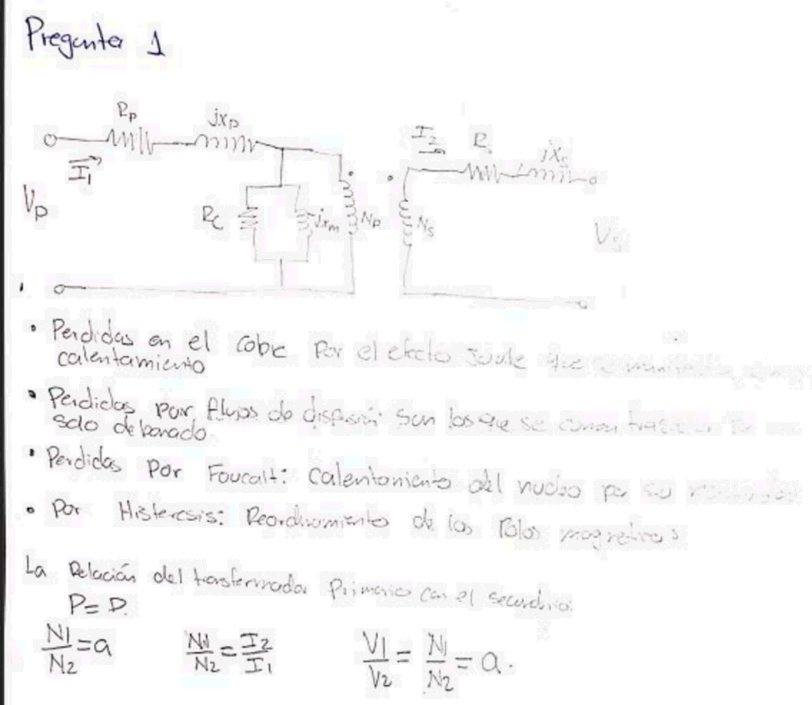 Pregunta 1
Rp jxp
I1
I2 R jXs
Vp
Rc jxm Np Ns
Vs
• Perdidas en el cobre Por el efecto Joule que
calentamiento
• Perdidas por flujos de dispersión son los que se
solo debanado
• Perdidas Por Foucalt: Calentamiento del nucleo
• Por Histeresis: Reordinamiento de los Polos magneticos
La Relación del trasfermador Primario con el secundrio
P=P
N1/N2 = a N1/N2 = I2/I1 V1/V2 = N1/N2 = a.